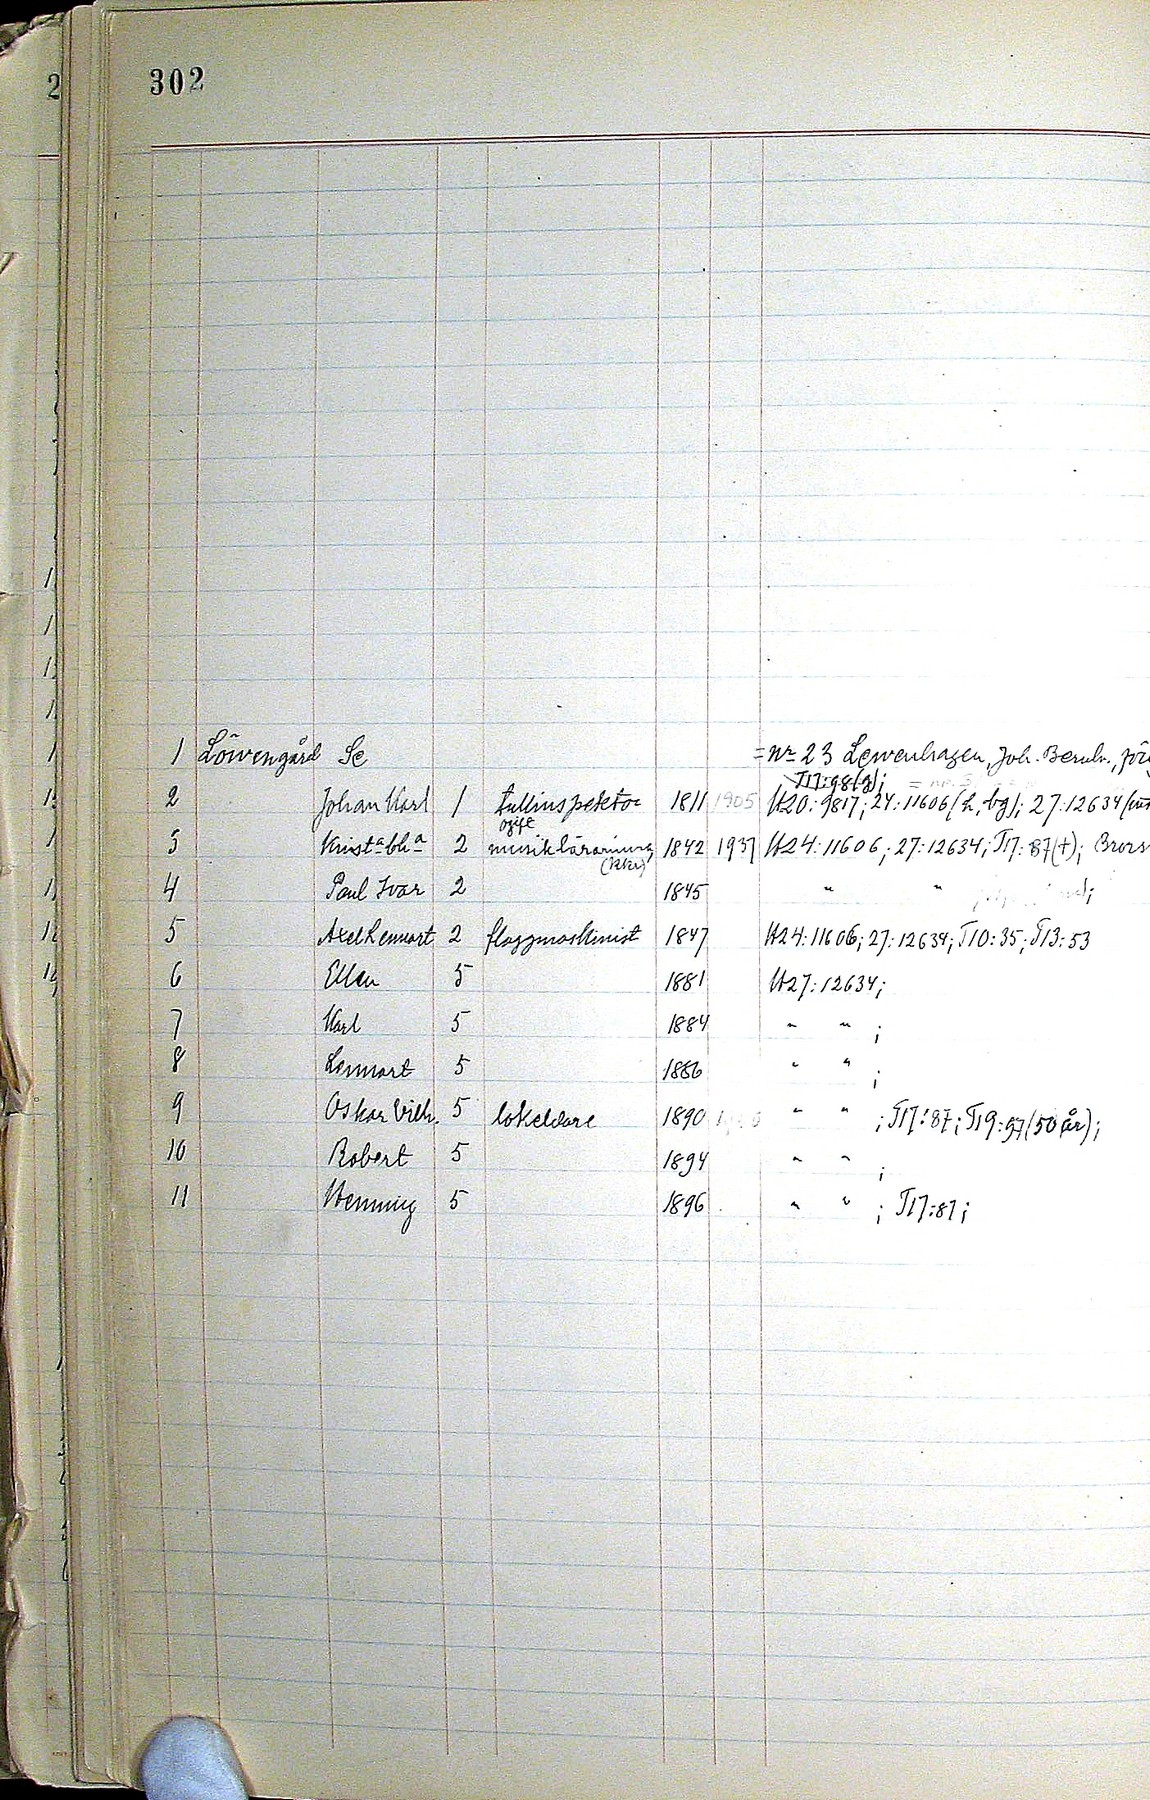 302
1 Löwengård Se = nr 23 Lewenhagen, Joh. Bernh.,
T17:98(g);
2 Johan Karl 1 tullinspektor 1811 1905 H20:9817; 24:11606 (h, bg); 27:12634
ogift
3 Krist-a bl-a 2 musiklärarinna 1842 1937 H24:11606; 27:12634; T17:87(+); Brors
4 Paul Ivar 2 1845 " "
5 Axel Lennart 2 flaggmaskinist 1847 H24:11606; 27:12634; T10:35; T13:53
6 Ellen 5 1881 H27:12634;
7 Karl 5 1884 " " ;
8 Lennart 5 1886 " " ;
9 Oskar Vilh. 5 lokeldare 1890 " " ; T17:87; T19:97 (50 år);
10 Robert 5 1894 " " ;
11 Henning 5 1896 " " ; T17:87;